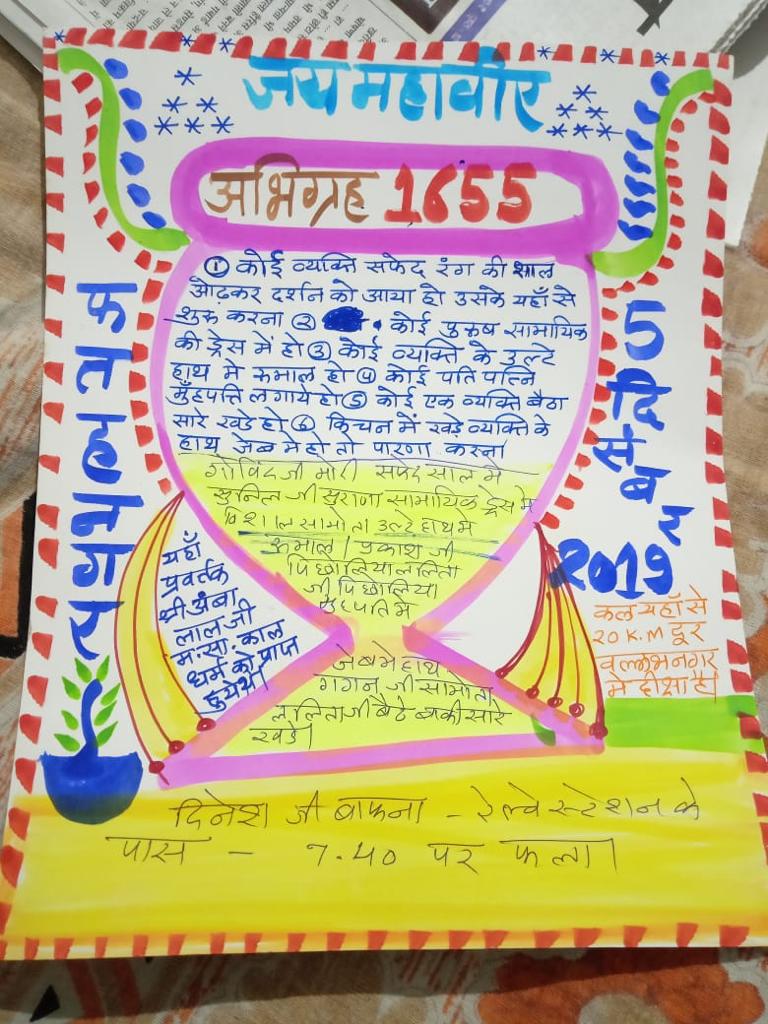 जय महावीर
अभिग्रह 1655
① कोई व्यक्ति सफेद रंग की शाल
ओढ़कर दर्शन को आया हो उसके यहाँ से
शुरू करना ② कोई पुरूष सामायिक
की ड्रेस में हो ③ कोई व्यक्ति के उल्टे
हाथ मे रूमाल हो ④ कोई पति पत्नि
मुँहपत्ति लगाये हो ⑤ कोई एक व्यक्ति बैठा
सारे खडे हो ⑥ किचन में खड़े व्यक्ति के
हाथ जेब मे हो तो पारणा करना।
गोविंद जी मोरी सफेद साल मे
सुनिल जी सुराणा सामायिक ड्रेस मे
विशाल सामोता उल्टे हाथ मे
रूमाल। प्रकाश जी
पिछोलिया ललिता
जी पिछोलिया
मुहपति मे
जेब मे हाथ
गगन जी सामोता
ललिता जी बैठे बाकी सारे
खडे।
फतहनगर
5 दिसंबर
2019
यहाँ
प्रवर्तक
श्री अंबा
लाल जी
म.सा. काल
धर्म को प्राप्त
हुये थे।
कल यहाँ से
20 K.M दूर
वल्लभनगर
में दीक्षा है।
दिनेश जी बाफना - रेल्वे स्टेशन के
पास - 7.40 पर फला।